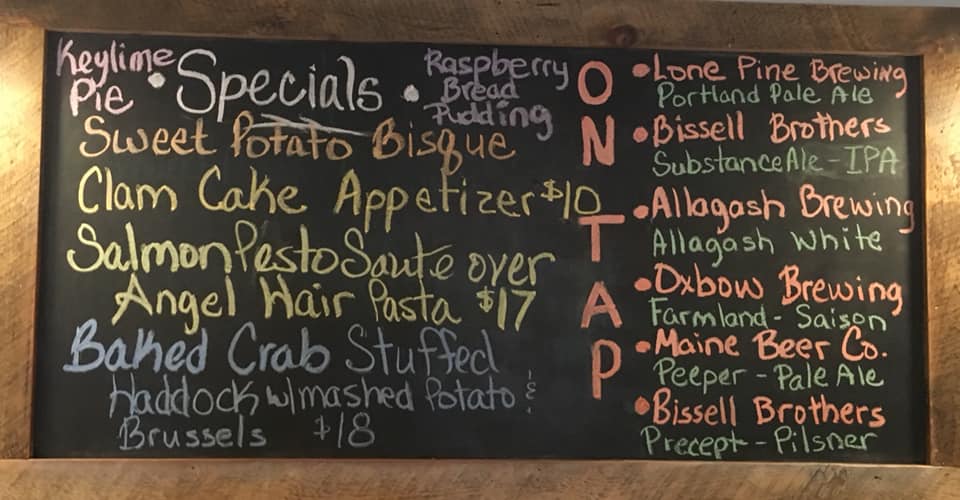 Keylime
Pie
• Specials •
Raspberry
Bread
Pudding
Sweet Potato Bisque
Clam Cake Appetizer $10
Salmon Pesto Saute over
Angel Hair Pasta $17
Baked Crab Stuffed
Haddock w/mashed Potato &
Brussels $18
ON TAP
• Lone Pine Brewing
Portland Pale Ale
• Bissell Brothers
Substance Ale - IPA
• Allagash Brewing
Allagash White
• Oxbow Brewing
Farmland - Saison
• Maine Beer Co.
Peeper - Pale Ale
• Bissell Brothers
Precept - Pilsner